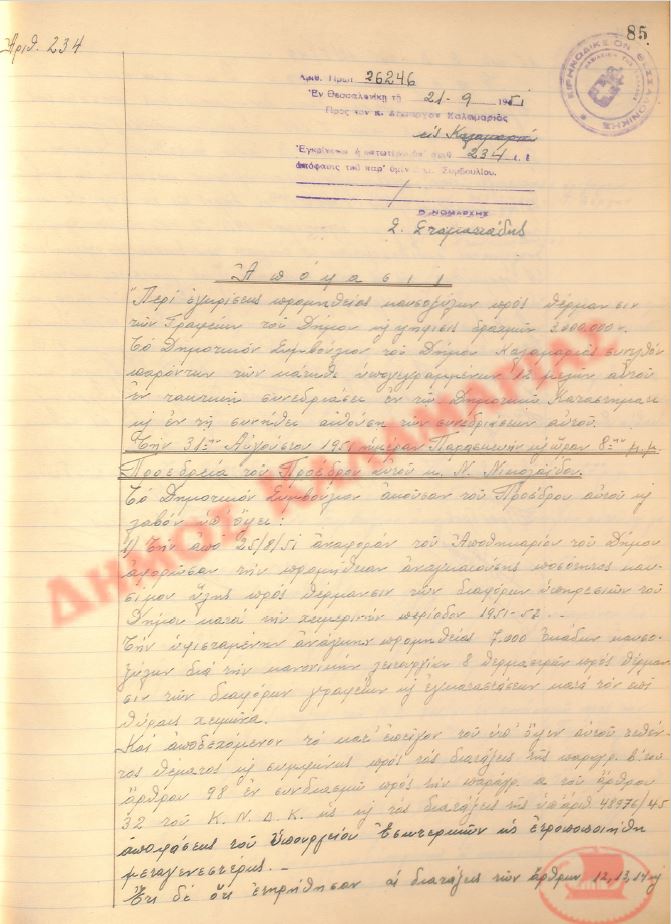 85
Ἀριθ. 234
ΕΙΡΗΝΟΔΙΚΕΙΟΝ ΘΕΣΣΑΛΟΝΙΚΗΣ
Ἀριθ. Πρωτ 26246
Ἐν Θεσσαλονίκῃ τῇ 21-9 1951
Πρὸς τὸν κ. Δήμαρχον Καλαμαριᾶς
εἰς Καλαμαριὰ
Ἐγκρίνεται ἡ κατωτέρω ὑπ' ἀριθ 234
ἀπόφασις τοῦ παρ' ὑμῖν Συμβουλίου.
Ο ΝΟΜΑΡΧΗΣ
Σ. Σταματιάδης
Ἀπόφασις
"Περὶ ἐγκρίσεως προμηθείας καυσοξύλων πρὸς θέρμανσιν
τῶν Γραφείων τοῦ Δήμου κ ψηφίσεως δραχμῶν 3.000.000
Τὸ Δημοτικὸν Συμβούλιον τοῦ Δήμου Καλαμαριᾶς συνελθὸν
παρόντων τῶν κάτωθι ὑπογεγραμμένων 12 μελῶν αὐτοῦ
ἐν τακτικῇ συνεδριάσει ἐν τῷ Δημοτικῷ Καταστήματι
κ ἐν τῇ συνήθει αἰθούσῃ τῶν συνεδριάσεων αὐτοῦ.
Τὴν 31ην Αὐγούστου 1951 ἡμέραν Παρασκευὴν κ ὥραν 8ην μ.μ.
Προεδρεία τοῦ Προέδρου αὐτοῦ κ. Ν. Νικολαΐδου.
Τὸ Δημοτικὸν Συμβούλιον ἀκοῦσαν τοῦ Προέδρου αὐτοῦ κ
λαβὸν ὑπ' ὄψει:
1) Τὴν ἀπὸ 25/8/51 ἀναφορὰν τοῦ Ἀποθηκαρίου τοῦ Δήμου
ἀφορῶσαν τὴν προμήθειαν ἀναγκαιούσης ποσότητος καυ-
σίμου ὕλης πρὸς θέρμανσιν τῶν διαφόρων ὑπηρεσιῶν τοῦ
Δήμου κατὰ τὴν χειμερινὴν περίοδον 1951-52 ..
Τὴν ὑφισταμένην ἀνάγκην προμηθείας 7.000 ὀκάδων καυσο-
ξύλων διὰ τὴν κανονικὴν λειτουργίαν 8 θερμαστρῶν πρὸς θέρμαν
σιν τῶν διαφόρων γραφείων κ ἐγκαταστάσεων κατὰ τὸν ἐπὶ
θύραις χειμῶνα.
Καὶ ἀποδεχόμενον τὸ κατ' ἐπεῖγον τοῦ ὑπ' ὄψιν αὐτοῦ τεθέν-
τος θέματος κ συμφώνως πρὸς τὰς διατάξεις τῆς παραγρ. β. τοῦ
ἄρθρου 98 ἐν συνδιασμῷ πρὸς τὴν παραγρ. α τοῦ ἄρθρου
32 τοῦ Κ. Ν. Δ. Κ ὡς κ τὰς διατάξεις τῆς ὑπ' ἀριθ. 48976/45
ἀποφάσεως τοῦ Ὑπουργείου Ἐσωτερικῶν ὡς ἐτροποποιήθη
μεταγενεστέρως.-
Ἔτι δὲ ὅτι ἐτηρήθησαν αἱ διατάξεις τῶν ἄρθρων 12, 13, 14 κ
ΔΗΜΟΣ ΚΑΛΑΜΑΡΙΑΣ